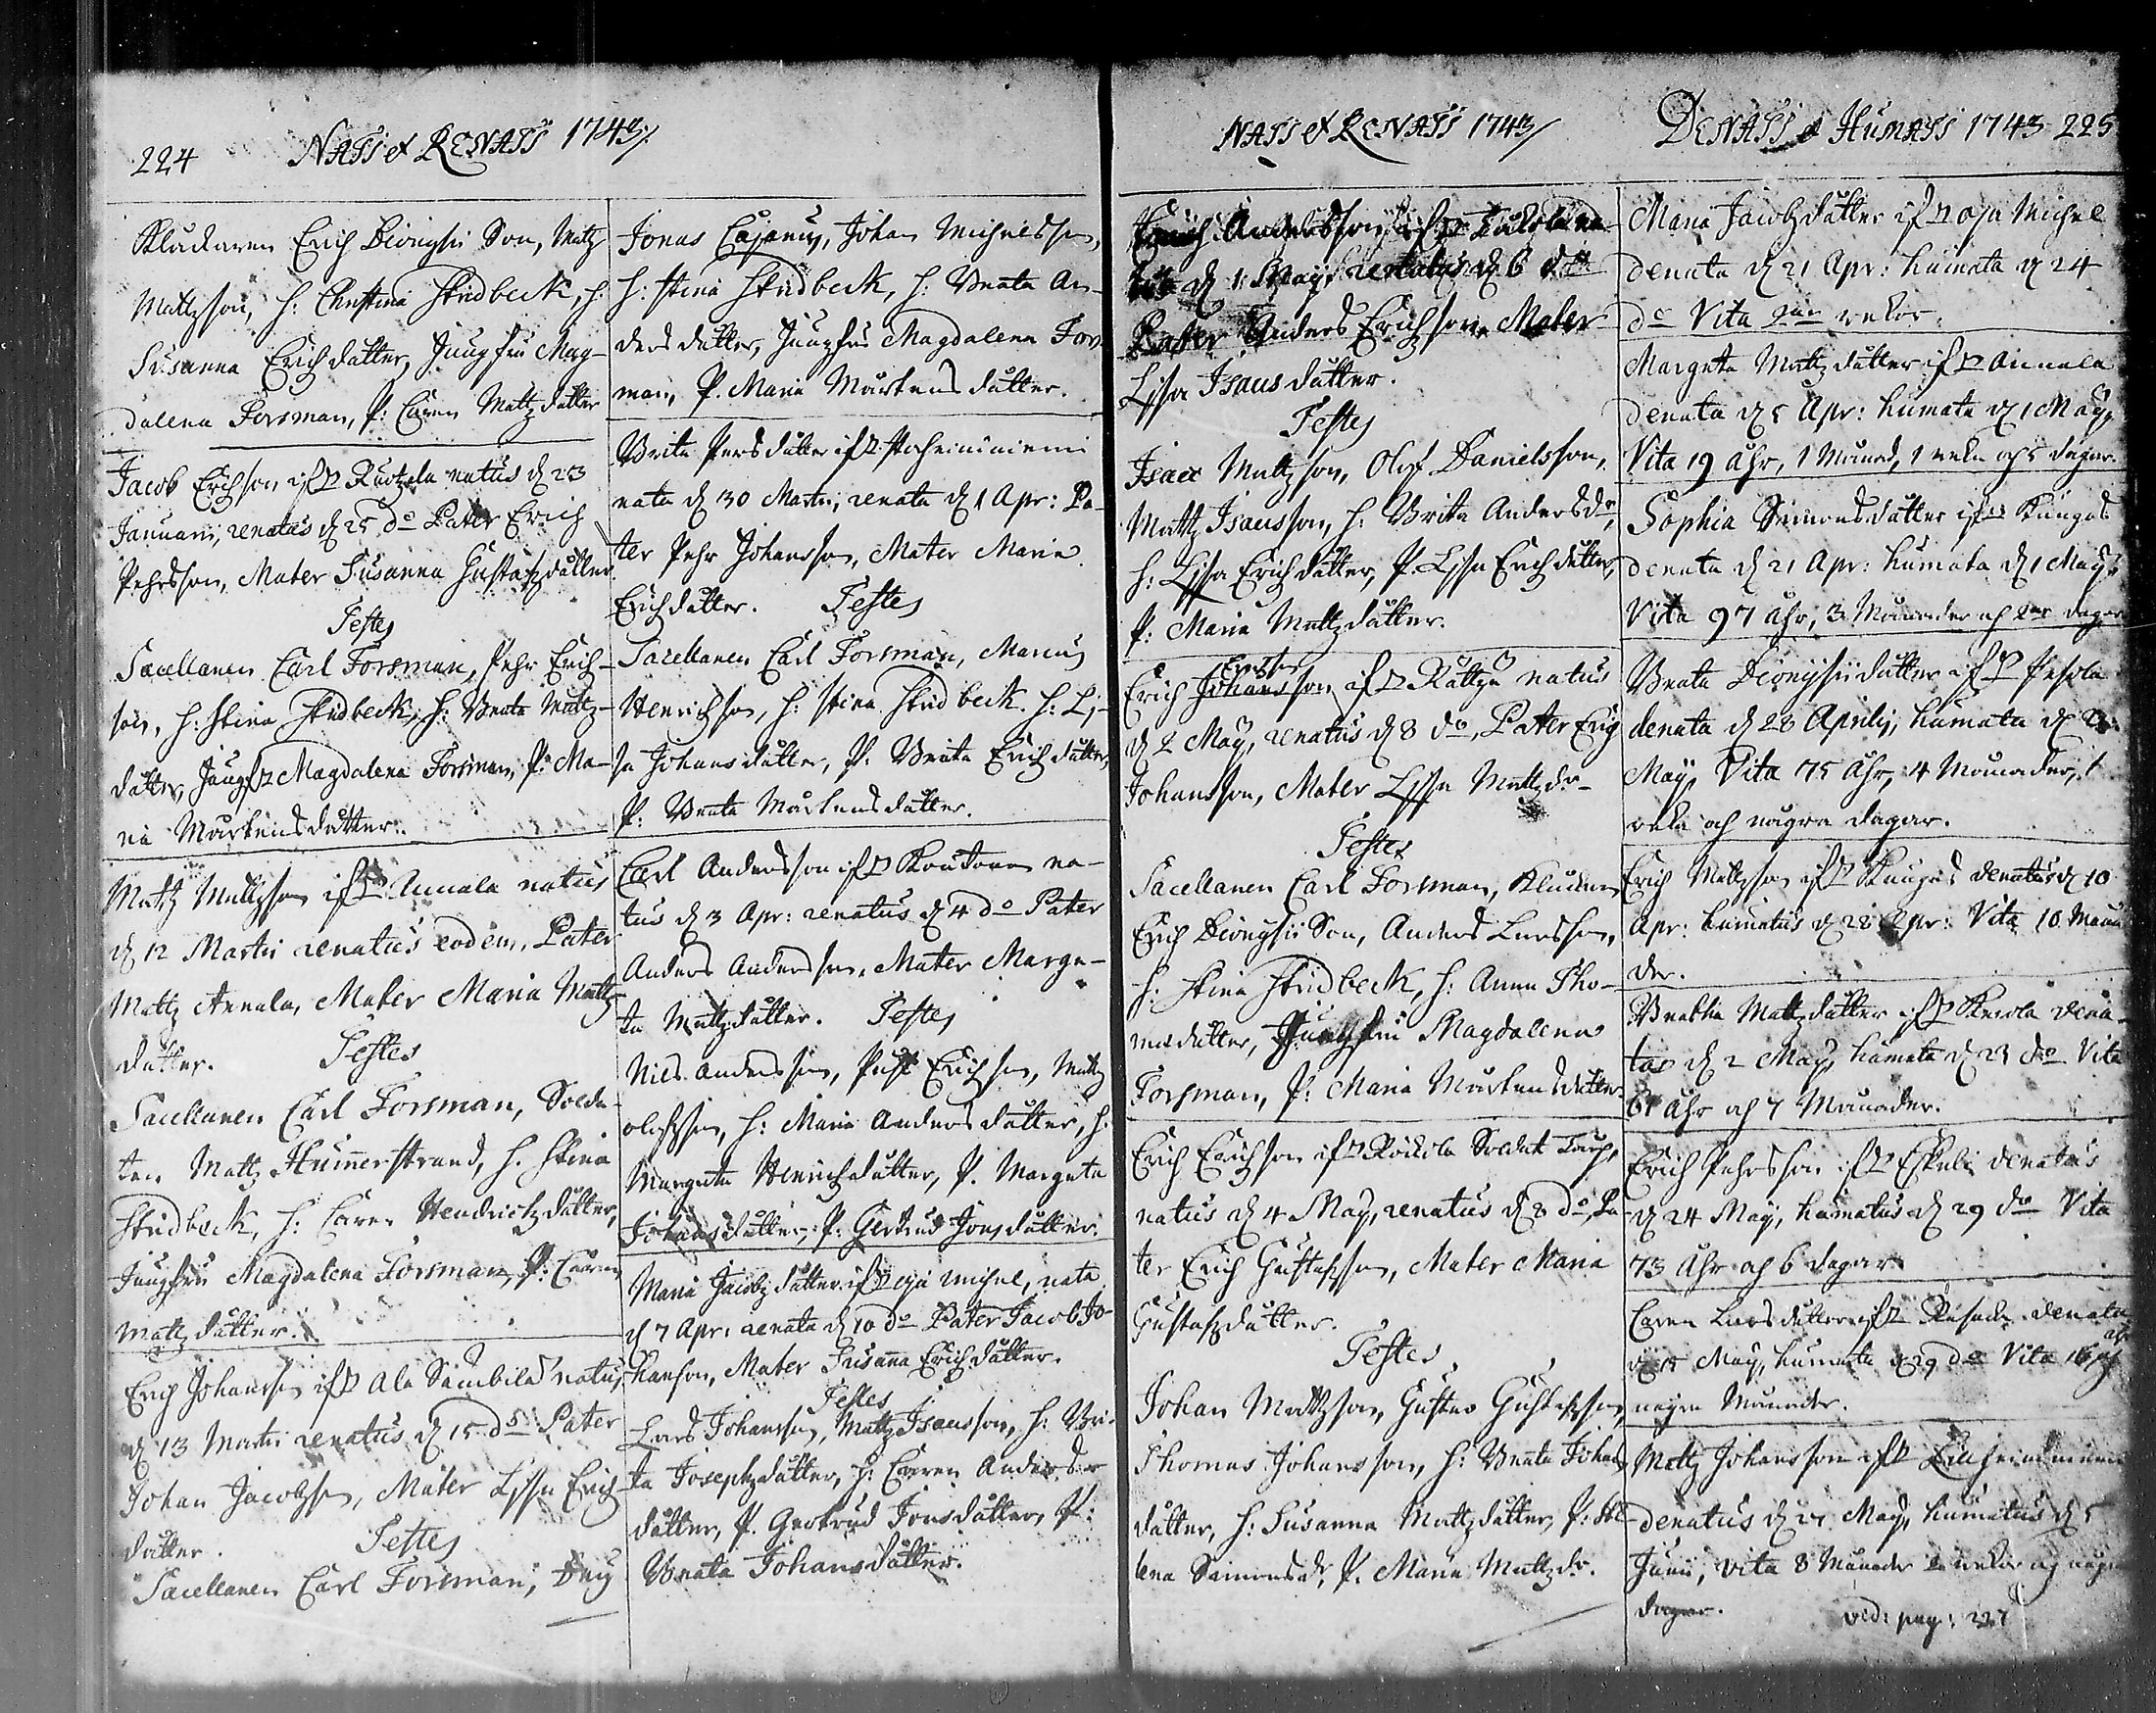 224 NATI et RENATI 1743/
Kluckaren Erich Dionysii Son, Matz
Mattzson, h: Christina Stridbeck, h:
Susanna Erichdatter, Jungfru Mag-
dalena Forsman, P: Caren Mattzdatter
Jacob Erichson ifr natus d 23
Januarii, renatus d 25 do Pater Erich
Pehrsson, Mater Susanna Gustafzdatter
Testes
Sacellanen Carl Forsman, Pehr Erich-
son, h: Stina Stridbeck, h: Breta Mattz-
datter, Jungfr Magdalena Forsman, P: Ma-
ria Mårtensdatter.
Mattz Mattzson ifr Annala natus
d 12 Martii renatus eodem, Pater
Mattz Annala, Mater Maria Mattz-
datter. Testes
Sacellanen Carl Forsman, Solda-
ten Mattz Hummerstrand, h. Stina
Stridbeck, h: Caren Hendrichzdatter,
Jungfru Magdalena Forsman, P: Caren
Mattzdatter.
Erich Johansson ifr Ala natus
d 13 Martii renatus d 15 do Pater
Johan Jacobzson, Mater Lissa Erich-
datter. Testes
Sacellanen Carl Forsman,
Jonas Cajanus, Johan Michelsson,
h: Stina Stridbeck, h: Breta An-
dersdatter, Jungfru Magdalena Fors-
man, P. Maria Mårtensdatter.
Brita Persdatter ifr
nata d 30 Martii, renata d 1 Apr: Pa-
ter Pehr Johansson, Mater Maria
Erichdatter. Testes
Sacellanen Carl Forsman, Marcus
Henrichson, h: Stina Stridbeck. h: Li-
sa Johansdatter, P. Breta Erichdatter,
P: Breta Mårtensdatter.
Carl Andersson ifr na-
tus d 3 Apr: renatus d 4 do Pater
Anders Andersson, Mater Marga-
ta Mattzdatter. Testes
Nils Andersson, Erichson, Mattz
Olofzson, h: Maria Andersdatter, h.
Margeta Henrichzdatter, P. Margeta
Johansdatter, P. Gertrud Jonsdatter.
Maria Jacobzdatter ifr Oja Michel, nata
d 7 Apr: renata d 10 do Pater Jacob Jo-
hanson, Mater Susanna Erichdatter.
Testes
Lars Johansson, Mattz Isacsson, h: Bri-
ta Josephzdatter, h: Caren Anders
datter, P. Gertrud Jonsdatter, P:
Breta Johansdatter.
NATI et RENATI 1743/
Erich Andersson ifr na-
tus d 1 May, renatus d 6 do
Pater Anders Erichson, Mater
Lissa Isacsdatter.
Testes
Isac Mattzson, Olof Danielsson,
Mattz Isacsson, h: Brita Andersdr,
h: Lissa Erichdatter, P. Lissa Erichdatter,
P: Maria Mattzdatter.
Erichson
Erich Johansson ifr natus
d 2 May, renatus d 8 do, Pater Erich
Johansson, Mater Lissa Mattzdr
Testes
Sacellanen Carl Forsman, Kluckaren
Erich Dionysii Son, Anders Larsson,
h: Stina Stridbeck, h: Anna Tho-
masdatter, Jungfru Magdalena
Forsman, P: Maria Mårtensdatter.
Erich Erichson ifr Soldat
natus d 4 May, renatus d 8 do, Pa-
ter Erich Gustafzson, Mater Maria
Gustafzdatter.
Testes
Johan Mattzson, Gustav Gustafzson,
Thomas Johansson, h: Breta Johans
datter, h: Susanna Mattzdatter, P: He-
lena Simonsdr, P. Maria Mattzdr.
DENATI & HUMATI 1743 225
Maria Jacobzdatter ifr Oja Michel
denata d 21 Apr: humata d 24
do Vita wekor.
Margeta Mattzdatter ifr Annala
denata d 5 Apr: humata d 1 May,
Vita 19 åhr, 1 Månad, 1 weka och 5 dagar.
Sophia Simonsdatter ifr Kangas
denata d 21 Apr: humata d 1 May,
Vita 97 åhr, 3 Månader och dagar
Breta Dionysiidatter ifr Pesola
denata d 28 Aprilis, humata d
May, Vita 75 åhr, 4 Månader, 1
weka och några dagar.
Erich Mattzson ifr Kangas denatus d 10
Apr: humatus d 28 Apr: Vita 10 Måna
der.
Mattzdatter ifr dena-
ta d 2 May, humata d 23 do Vita
61 åhr och 7 Månader.
Erich Pehrsson ifr denatus
d 24 May, humatus d 29 do Vita
73 åhr och 6 dagar
Caren Larsdatter ifr denata
d 15 May, humata d 29 do Vita 16 åhr och
några Månader.
Mattz Johansson ifr
denatus d May, humatus d 5
Junii, Vita 8 Månader wekor och några
dagar. vid: pag: 227